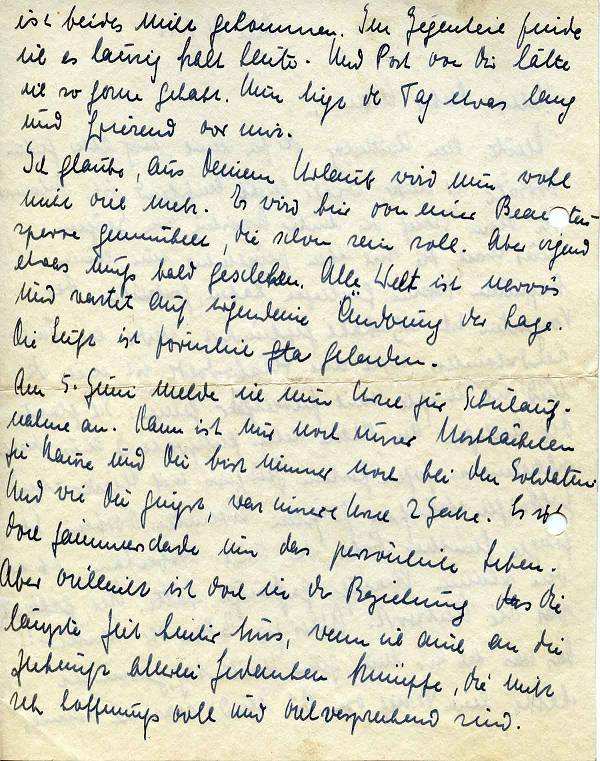 ist beides nicht gekommen. Im Gegenteil finde
ich es lausig kalt heute. Und Post von Dir hätte
ich so gerne gehabt. Nun liegt der Tag etwas lang
und frierend vor mir.
Ich glaube, aus Deinem Urlaub wird nun wohl
nicht viel mehr. Es wird hier von einer Beamten-
sperre gemunkelt, die schon sein soll. Aber irgend
etwas muß bald geschehen. Alle Welt ist nervös
und wartet auf irgendeine Änderung der Lage.
Die Luft ist förmlich geladen.
Am 5. Juni melde ich nun Uwe zur Schulauf-
nahme an. Dann ist nur noch unser
zu Hause und Du bist immer noch bei den Soldaten.
Und wie Du gingst, war unser Uwe 2 Jahre. Es ist
doch jammerschade um das persönliche Leben.
Aber vielleicht ist doch in der Beziehung das die
längste Zeit hinter uns, wenn ich auch an die
Zukunft allerlei Gedanken knüpfe, die nicht
sehr hoffnungsvoll und vielversprechend sind.